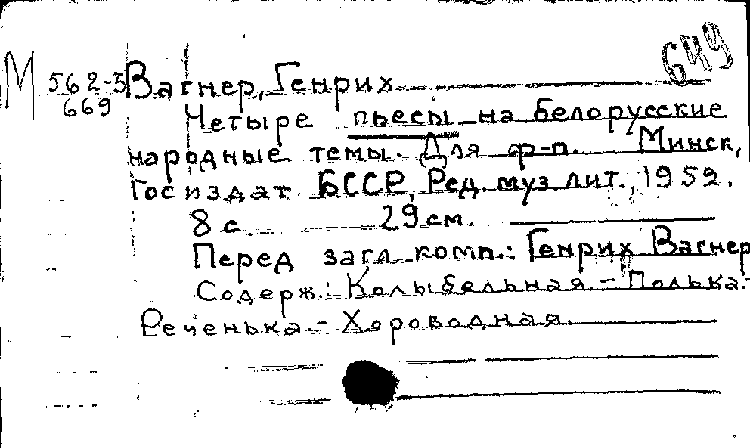 649
М 562-3 Вагнер, Генрих
669
Четыре пьесы на белорусские
народные темы. Для ф-п. Минск,
Госиздат БССР, Ред. муз. лит., 1952.
8 с. 29 см.
Перед загл. комп.: Генрих Вагнер
Содерж.: Колыбельная. - Полька. -
Реченька. - Хороводная.